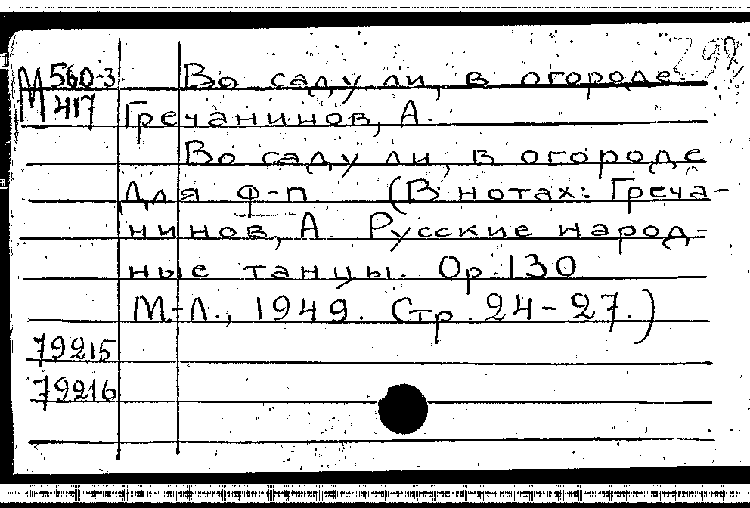 М 560-3 Во саду ли, в огороде. 292
М 417 Гречанинов, А.
Во саду ли, в огороде
для ф-п (В нотах: Греча-
нинов, А. Русские народ-
ные танцы. Ор. 130
М.-Л., 1949. Стр. 24-27.)
79215
79216